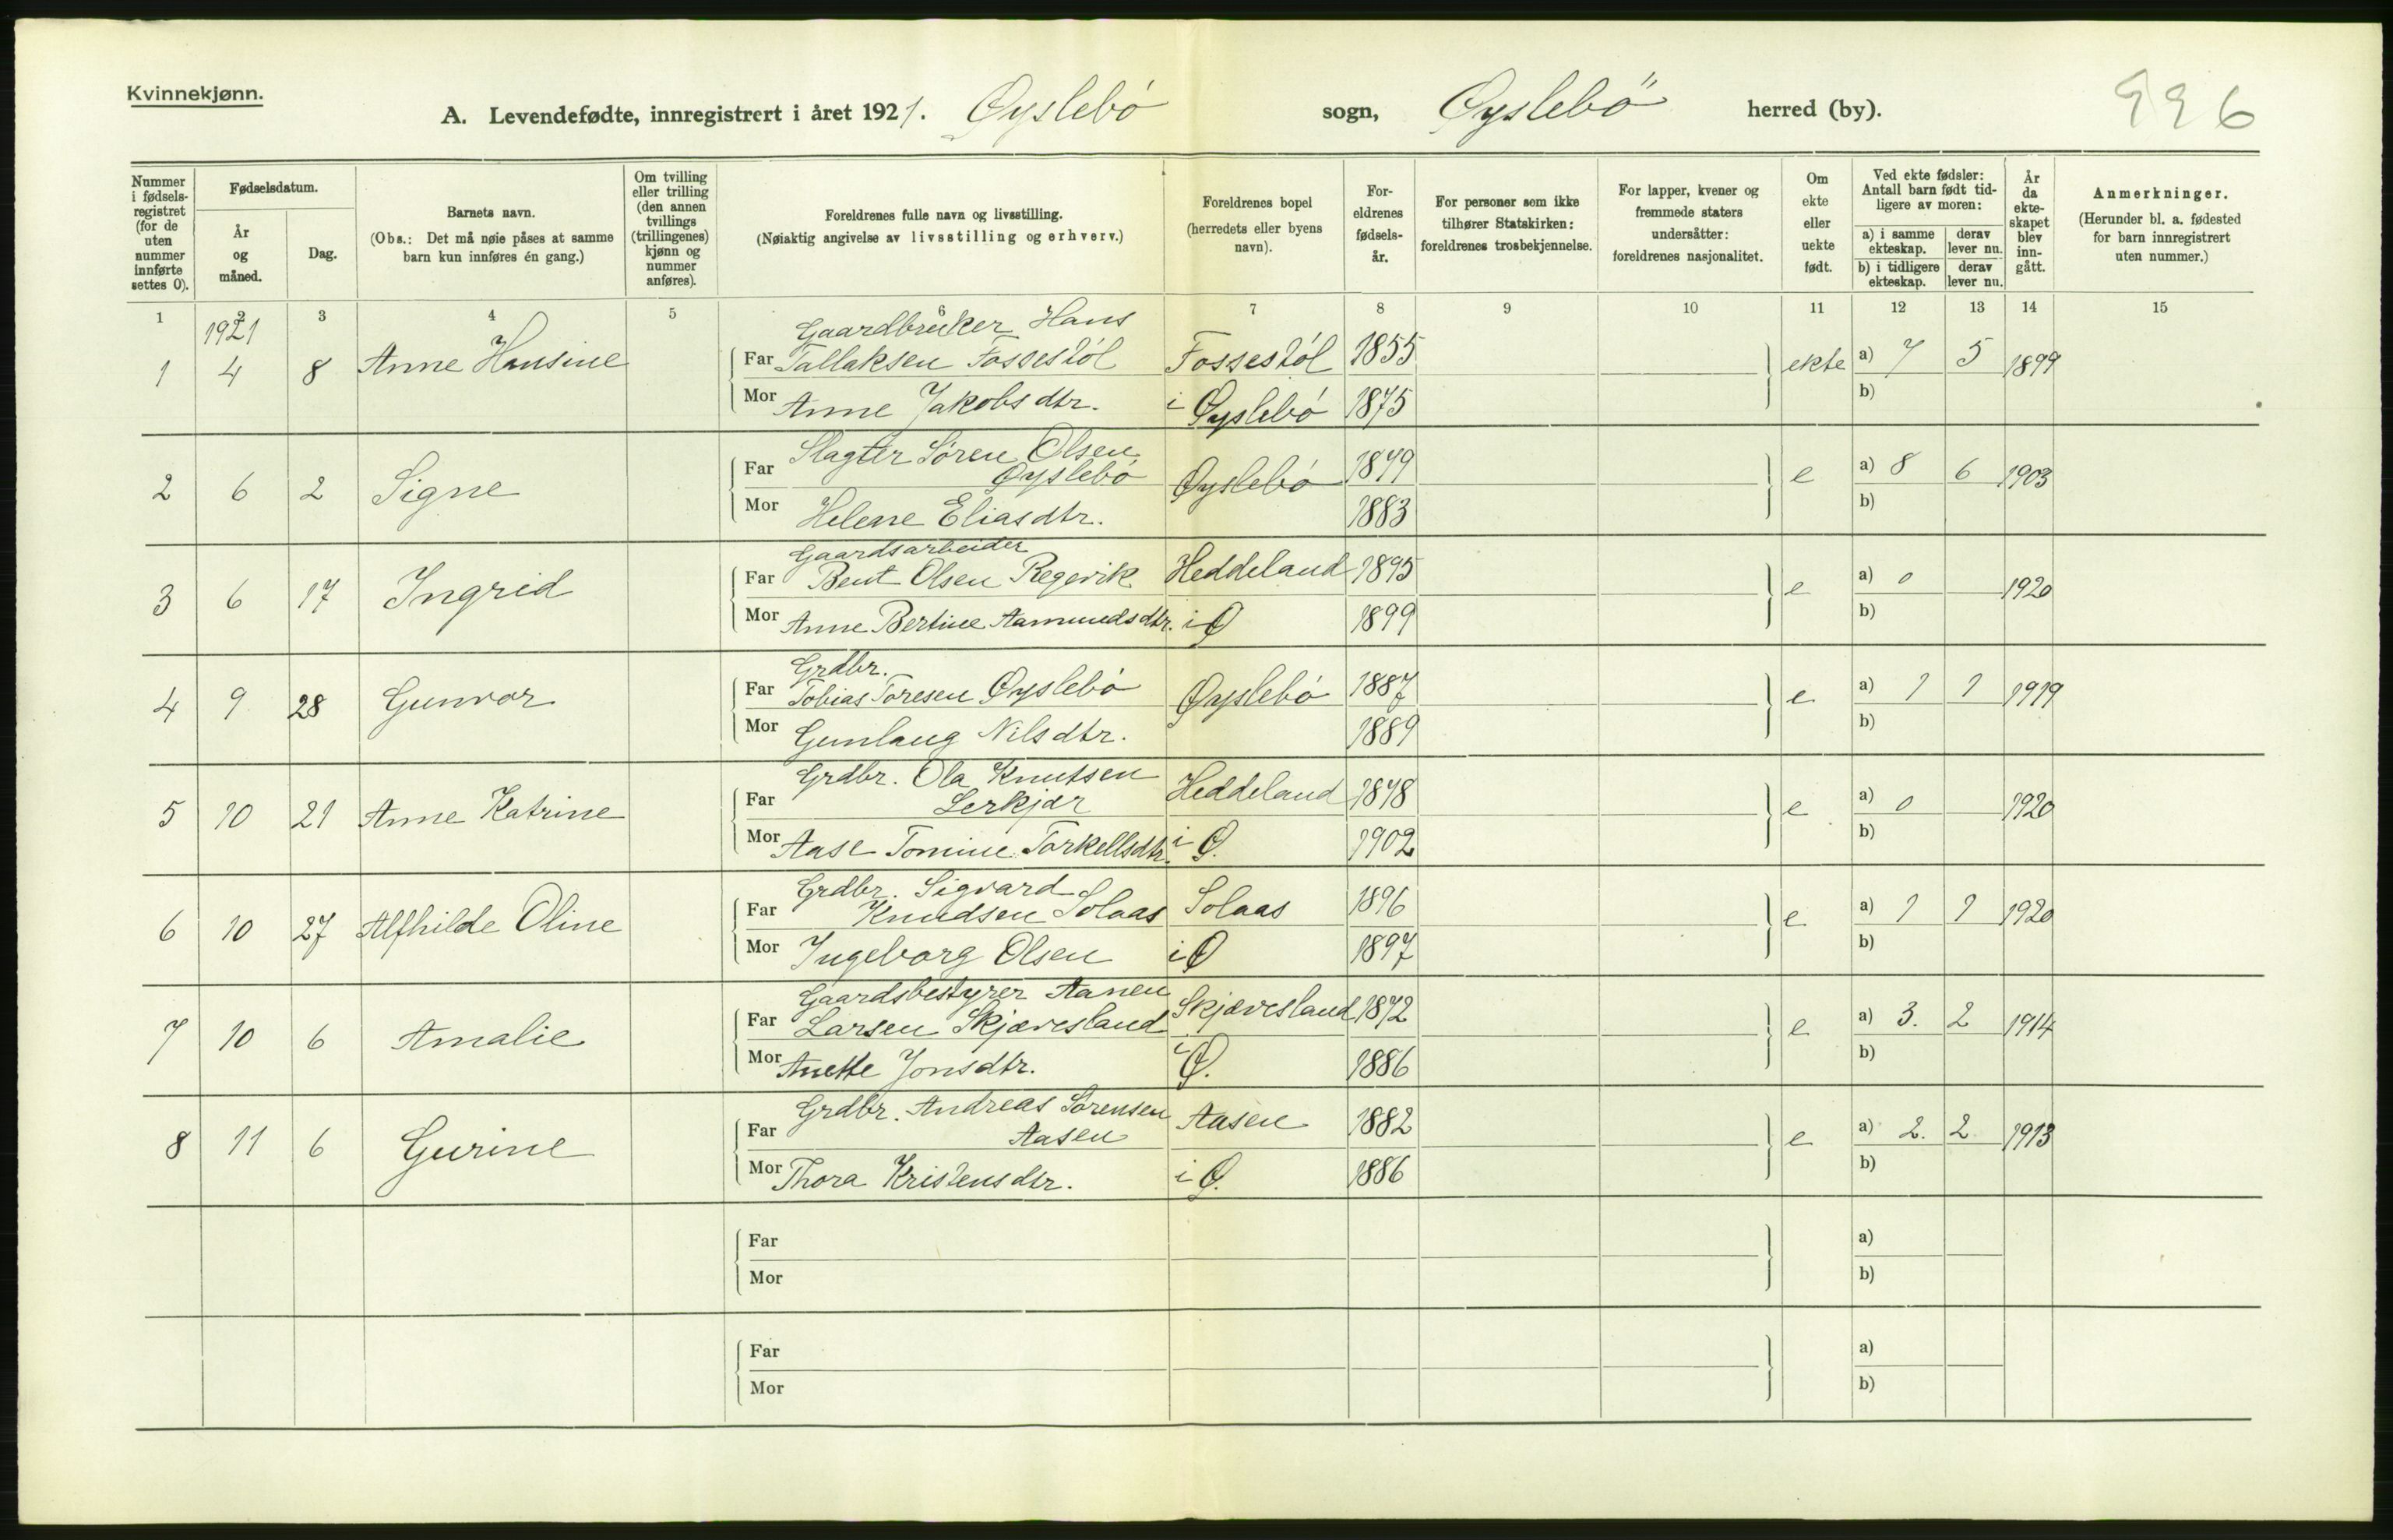 Kvinnekjønn.
A. Levendefødte, innregistrert i året 1921. Øyslebö sogn, Øyslebö herred (by).
Nummer i fødsels-registret (for de uten nummer innførte settes 0).
Fødselsdatum.
År og måned.
Dag.
Barnets navn.
(Obs.: Det må nøie påses at samme barn kun innføres én gang.)
Om tvilling eller trilling (den annen tvillings (trillingenes) kjønn og nummer anføres).
Foreldrenes fulle navn og livsstilling.
(Nøiaktig angivelse av livsstilling og erhverv.)
Foreldrenes bopel (herredets eller byens navn).
For-eldrenes fødsels-år.
For personer som ikke tilhører Statskirken: foreldrenes trosbekjennelse.
For lapper, kvener og fremmede staters undersåtter: foreldrenes nasjonalitet.
Om ekte eller uekte født.
Ved ekte fødsler: Antall barn født tid-ligere av moren:
a) i samme ekteskap.
derav lever nu.
b) i tidligere ekteskap.
derav lever nu.
År da ekte-skapet blev inn-gått.
Anmerkninger.
(Herunder bl. a. fødested for barn innregistrert uten nummer.)
1 2 3 4 5 6 7 8 9 10 11 12 13 14 15
1921
Gaardbruker Hans
1 4 8 Anne Hansine Far Tallaksen Fossestöl Fossestöl 1855 ekte a) 7 5 1899
Mor Anne Jakobsdtr. i Øyslebö 1875 b)
Slagter Sören Olsen
2 6 2 Signe Far Øyslebö Øyslebö 1879 e a) 8 6 1903
Mor Helene Eliasdtr. 1883 b)
Gaardsarbeider
3 6 17 Ingrid Far Bent Olsen Regevik Heddeland 1895 e a) 0 1920
Mor Anne Bertine Aamundsdtr. i Ø 1899 b)
Grdbr.
4 9 28 Gunvor Far Tobias Toresen Øyslebö Øyslebö 1887 e a) 1 1 1919
Mor Gunlaug Nilsdtr. 1889 b)
Grdbr. Ola Knutsen
5 10 21 Anne Katrine Far Lerkjær Heddeland 1878 e a) 0 1920
Mor Aase Tomine Torkellsdtr. i Ø. 1902 b)
Grdbr. Sigvard
6 10 27 Alfhilde Oline Far Knudsen Solaas Solaas 1896 e a) 1 1 1920
Mor Ingeborg Olsen i Ø 1897 b)
Gaardsbestyrer Aanen
7 10 6 Amalie Far Larsen Skjævesland Skjævesland 1872 e a) 3. 2 1914
Mor Anette Jonsdtr. i Ø. 1886 b)
Grdbr. Andreas Sörensen
8 11 6 Gurine Far Aasen Aasen 1882 e a) 2. 2 1913
Mor Thora Kristensdtr. i Ø. 1886 b)
Far a)
Mor b)
Far a)
Mor b)